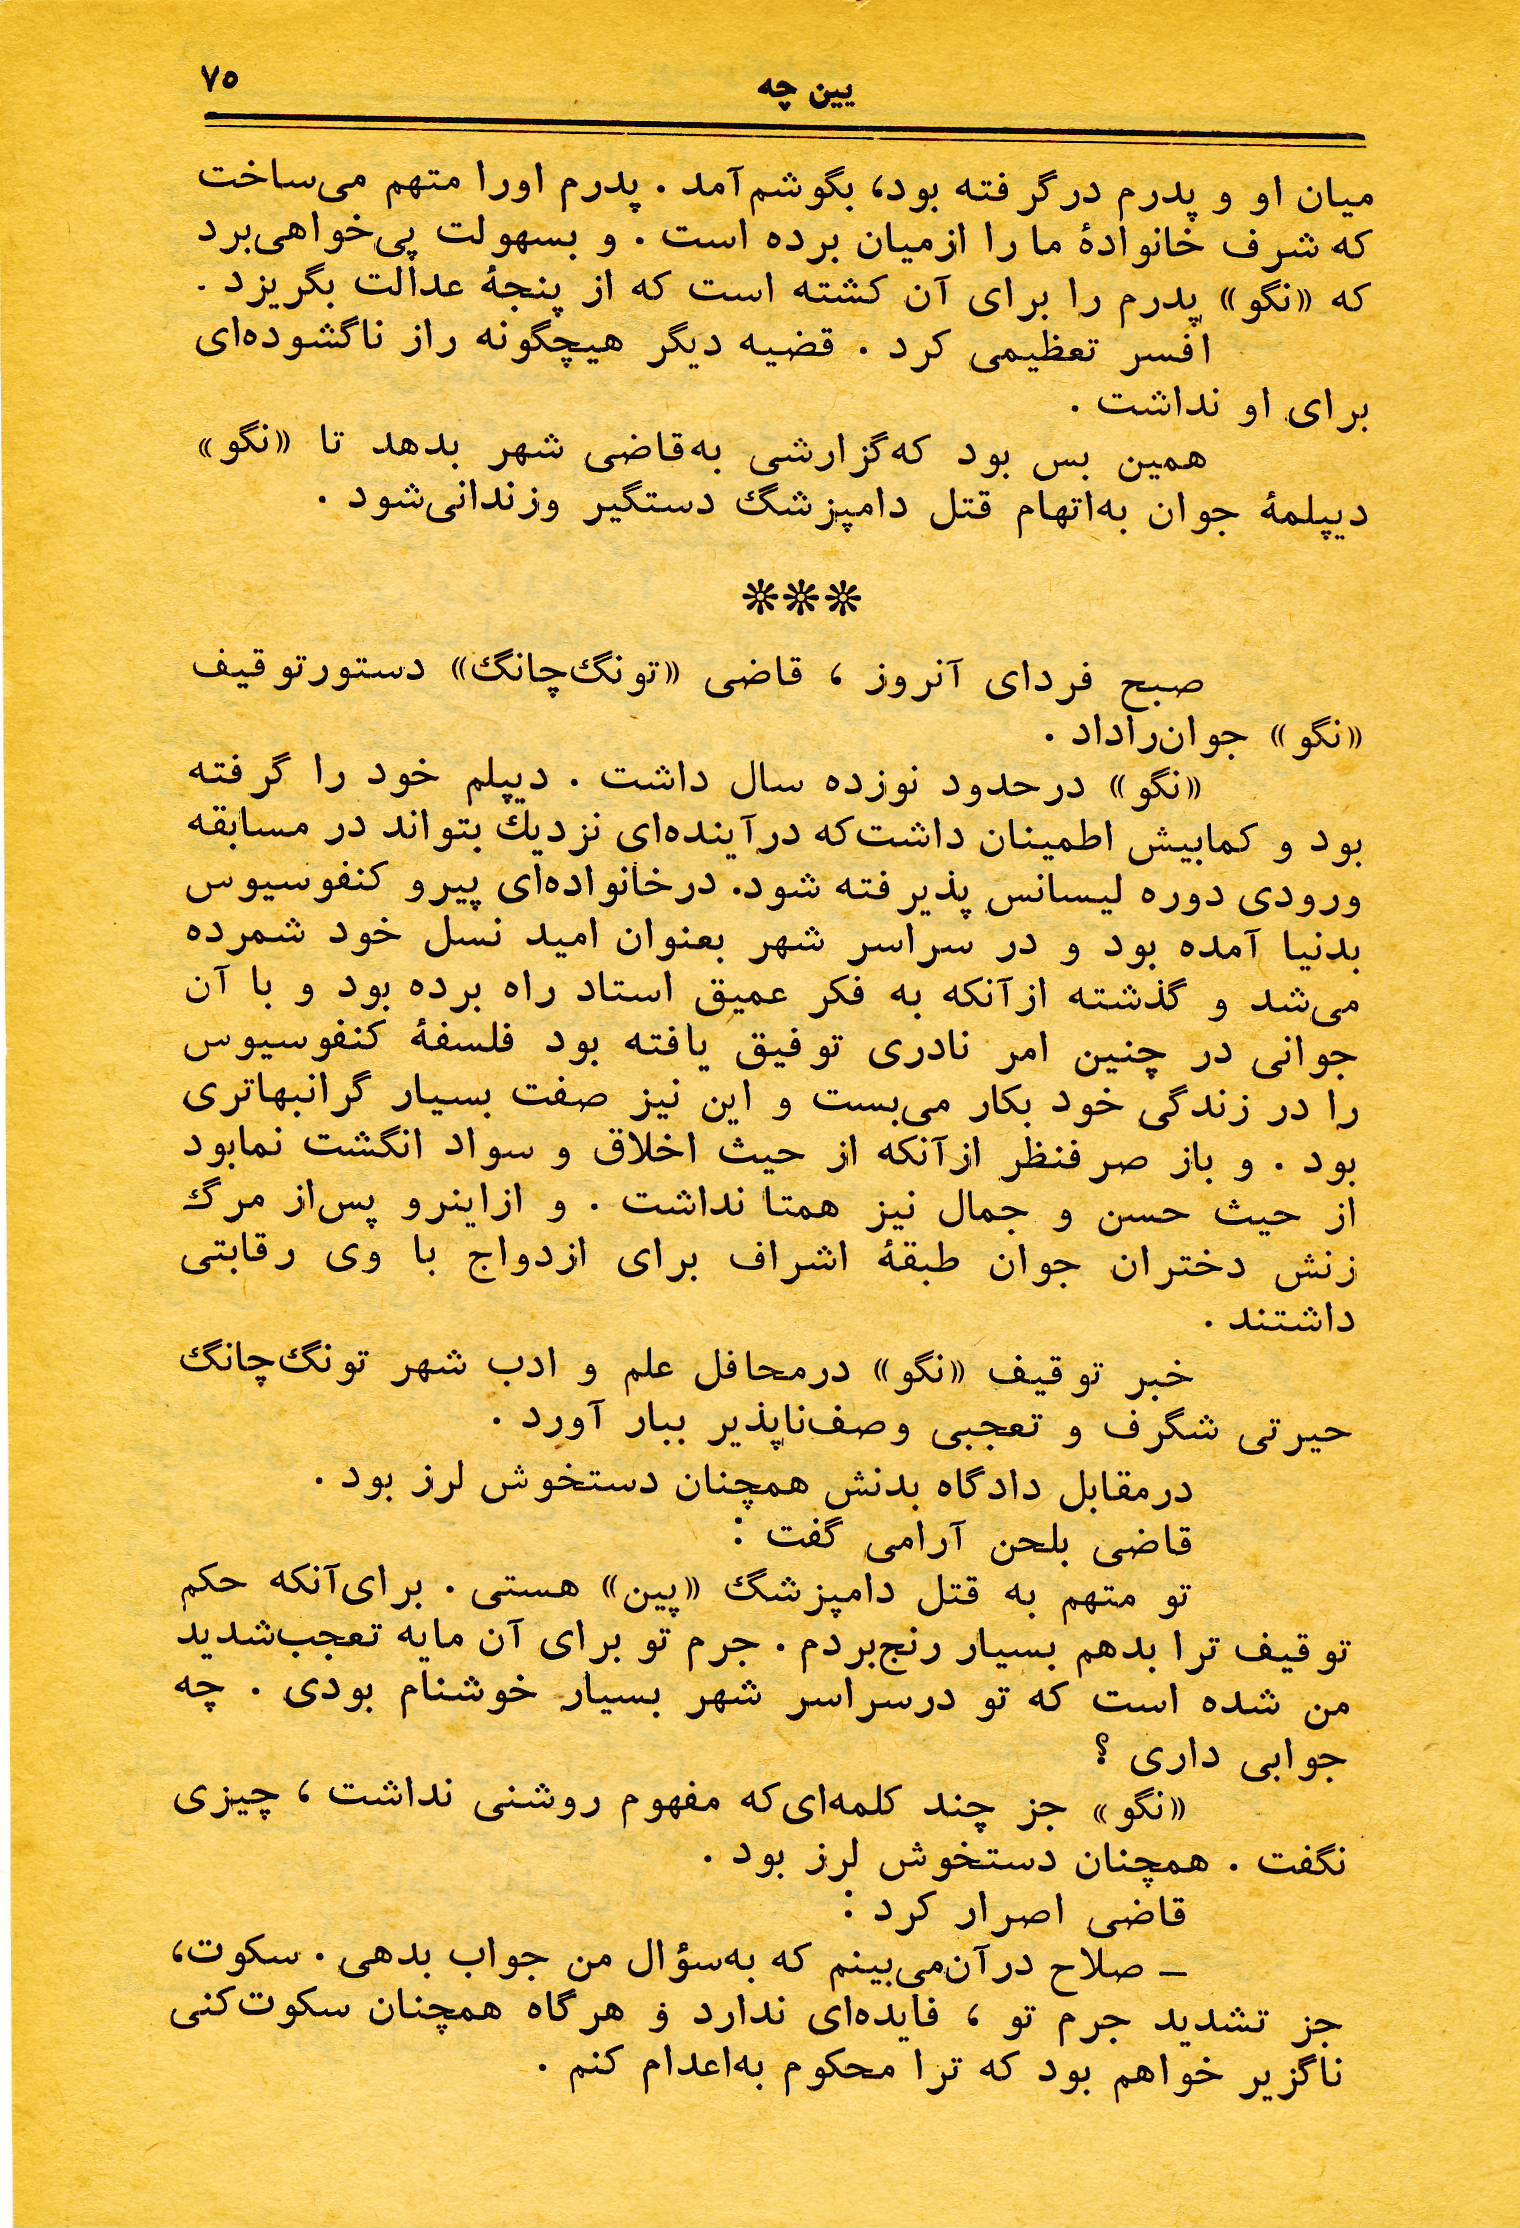 یین چه
۷۵
میان او و پدرم درگرفته بود، بگوشم‌آمد . پدرم اورا متهم می‌ساخت
که شرف خانوادهٔ ما را ازمیان برده است . و بسهولت پی‌خواهی‌برد
که «نگو» پدرم را برای آن کشته است که از پنجهٔ عدالت بگریزد .
افسر تعظیمی کرد . قضیه دیگر هیچگونه راز ناگشوده‌ای
برای او نداشت .
همین بس بود که‌گزارشی به‌قاضی شهر بدهد تا «نگو»
دیپلمهٔ جوان به‌اتهام قتل دامپزشگ دستگیر وزندانی‌شود .
***
صبح فردای آنروز ، قاضی «تونگ‌چانگ» دستورتوقیف
«نگو» جوان‌راداد .
«نگو» درحدود نوزده سال داشت . دیپلم خود را گرفته
بود و کمابیش اطمینان داشت‌که درآینده‌ای نزدیك بتواند در مسابقه
ورودی دوره لیسانس پذیرفته شود. درخانواده‌ای پیرو کنفوسیوس
بدنیا آمده بود و در سراسر شهر بعنوان امید نسل خود شمرده
می‌شد و گذشته ازآنکه به فکر عمیق استاد راه برده بود و با آن
جوانی در چنین امر نادری توفیق یافته بود فلسفهٔ کنفوسیوس
را در زندگی خود بکار می‌بست و این نیز صفت بسیار گرانبهاتری
بود . و باز صرفنظر ازآنکه از حیث اخلاق و سواد انگشت نمابود
از حیث حسن و جمال نیز همتا نداشت . و ازاینرو پس‌از مرگ
زنش دختران جوان طبقهٔ اشراف برای ازدواج با وی رقابتی
داشتند .
خبر توقیف «نگو» درمحافل علم و ادب شهر تونگ‌چانگ
حیرتی شگرف و تعجبی وصف‌ناپذیر ببار آورد .
درمقابل دادگاه بدنش همچنان دستخوش لرز بود .
قاضی بلحن آرامی گفت :
تو متهم به قتل دامپزشگ «پین» هستی . برای‌آنکه حکم
توقیف ترا بدهم بسیار رنج‌بردم . جرم تو برای آن مایه تعجب‌شدید
من شده است که تو درسراسر شهر بسیار خوشنام بودی . چه
جوابی داری ؟
«نگو» جز چند کلمه‌ای‌که مفهوم روشنی نداشت ، چیزی
نگفت . همچنان دستخوش لرز بود .
قاضی اصرار کرد :
ـ صلاح درآن‌می‌بینم که به‌سؤال من جواب بدهی . سکوت،
جز تشدید جرم تو ، فایده‌ای ندارد و هرگاه همچنان سکوت‌کنی
ناگزیر خواهم بود که ترا محکوم به‌اعدام کنم .